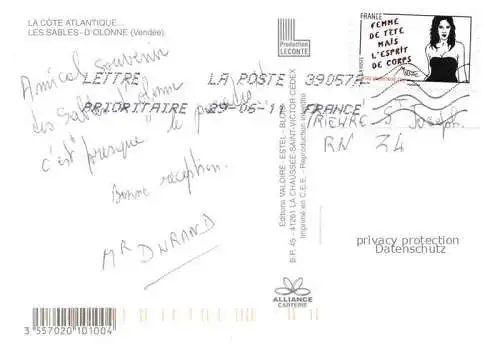 LA CÔTE ATLANTIQUE...
LES SABLES-D'OLONNE (Vendée)
Amical souvenir
des Sables d'Olonne
c'est "presque" le paradis!
Bonne réception.
Mr DURAND
Production
LECONTE
LETTRE LA POSTE 39057A
PRIORITAIRE 29-06-11 FRANCE
FRANCE
FEMME
DE TÊTE
MAIS
L'ESPRIT
DE CORPS
St Joseph
RN 34
Editions VALOIRE - ESTEL - BLOIS
B.P. 45 - 41261 LA CHAUSSEE-SAINT-VICTOR CEDEX
Imprimé en C.E.E. - Reproduction interdite
privacy protection
Datenschutz
ALLIANCE
CARTERIE
3 557020 101004